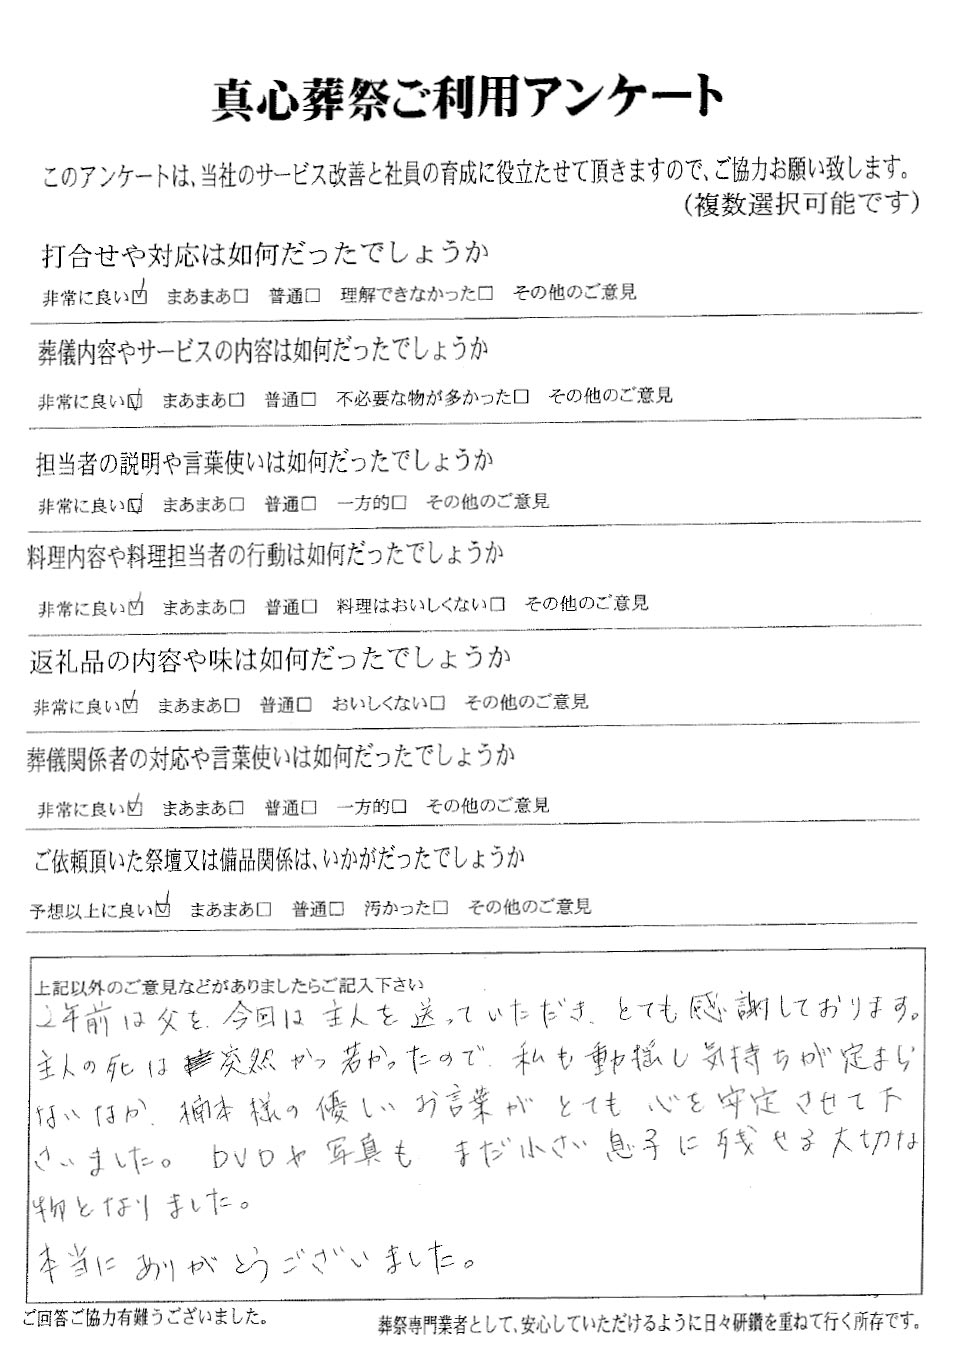 真心葬祭ご利用アンケート
このアンケートは、当社のサービス改善と社員の育成に役立たせて頂きますので、ご協力お願い致します。
（複数選択可能です）
打合せや対応は如何だったでしょうか
非常に良い☑ まあまあ□ 普通□ 理解できなかった□ その他のご意見
葬儀内容やサービスの内容は如何だったでしょうか
非常に良い☑ まあまあ□ 普通□ 不必要な物が多かった□ その他のご意見
担当者の説明や言葉使いは如何だったでしょうか
非常に良い☑ まあまあ□ 普通□ 一方的□ その他のご意見
料理内容や料理担当者の行動は如何だったでしょうか
非常に良い☑ まあまあ□ 普通□ 料理はおいしくない□ その他のご意見
返礼品の内容や味は如何だったでしょうか
非常に良い☑ まあまあ□ 普通□ おいしくない□ その他のご意見
葬儀関係者の対応や言葉使いは如何だったでしょうか
非常に良い☑ まあまあ□ 普通□ 一方的□ その他のご意見
ご依頼頂いた祭壇又は備品関係は、いかがだったでしょうか
予想以上に良い☑ まあまあ□ 普通□ 汚かった□ その他のご意見
上記以外のご意見などがありましたらご記入下さい
2年前は父を、今回は主人を送っていただき、とても感謝しております。
主人の死は突然かつ若かったので、私も動揺し気持ちが定まら
ないなか、楠本様の優しいお言葉がとても心を安定させて下
さいました。DVDや写真も、まだ小さい息子に残せる大切な
物となりました。
本当にありがとうございました。
ご回答ご協力有難うございました。
葬祭専門業者として、安心していただけるように日々研鑽を重ねて行く所存です。